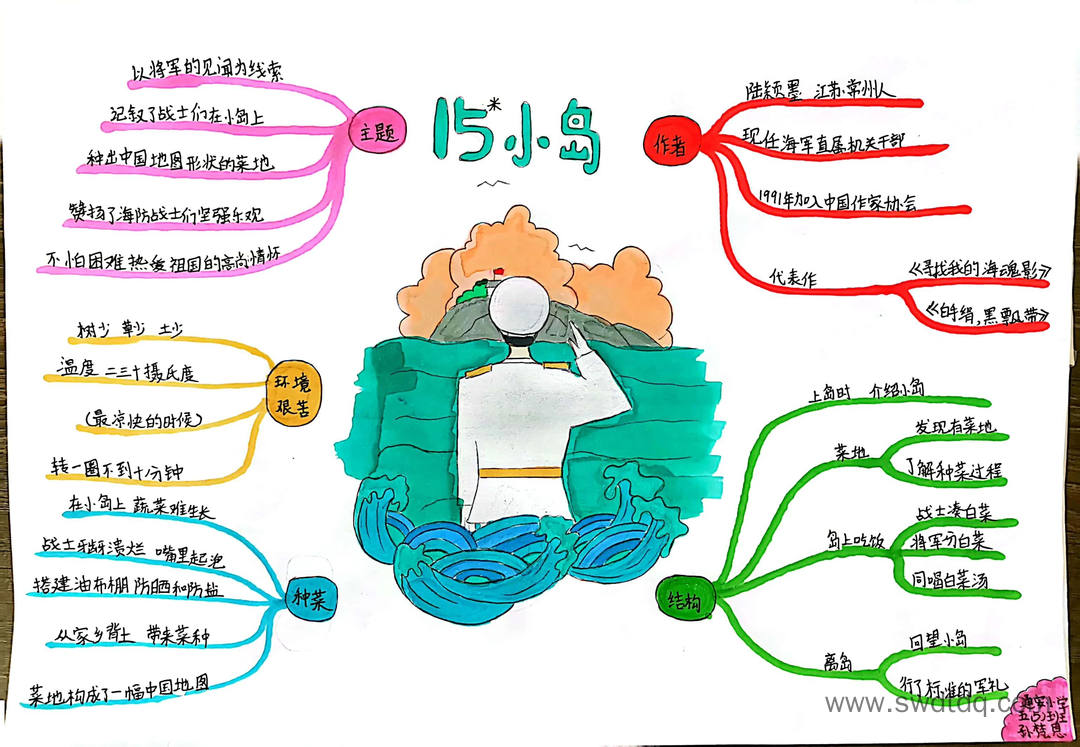 15米小岛
主题
以将军的见闻为线索
记叙了战士们在小岛上
种出中国地图形状的菜地
赞扬了海防战士们坚强乐观
不怕困难热爱祖国的高尚情怀
环境
艰苦
树少 草少 土少
温度 二三十摄氏度
(最凉快的时候)
转一圈不到十分钟
种菜
在小岛上 蔬菜难生长
战士牙龈溃烂 嘴里起泡
搭建油布棚 防晒和防盐
从家乡背土 带来菜种
菜地构成了一幅中国地图
作者
陆颖墨 江苏常州人
现任海军直属机关干部
1991年加入中国作家协会
代表作
《寻找我的海魂影》
《白手绢,黑飘带》
结构
上岛时 介绍小岛
菜地
发现有菜地
了解种菜过程
岛上吃饭
战士凑白菜
将军分白菜
同喝白菜汤
离岛
回望小岛
行了标准的军礼
小学
五(5)班
孙梵恩
www.swdtdq.com